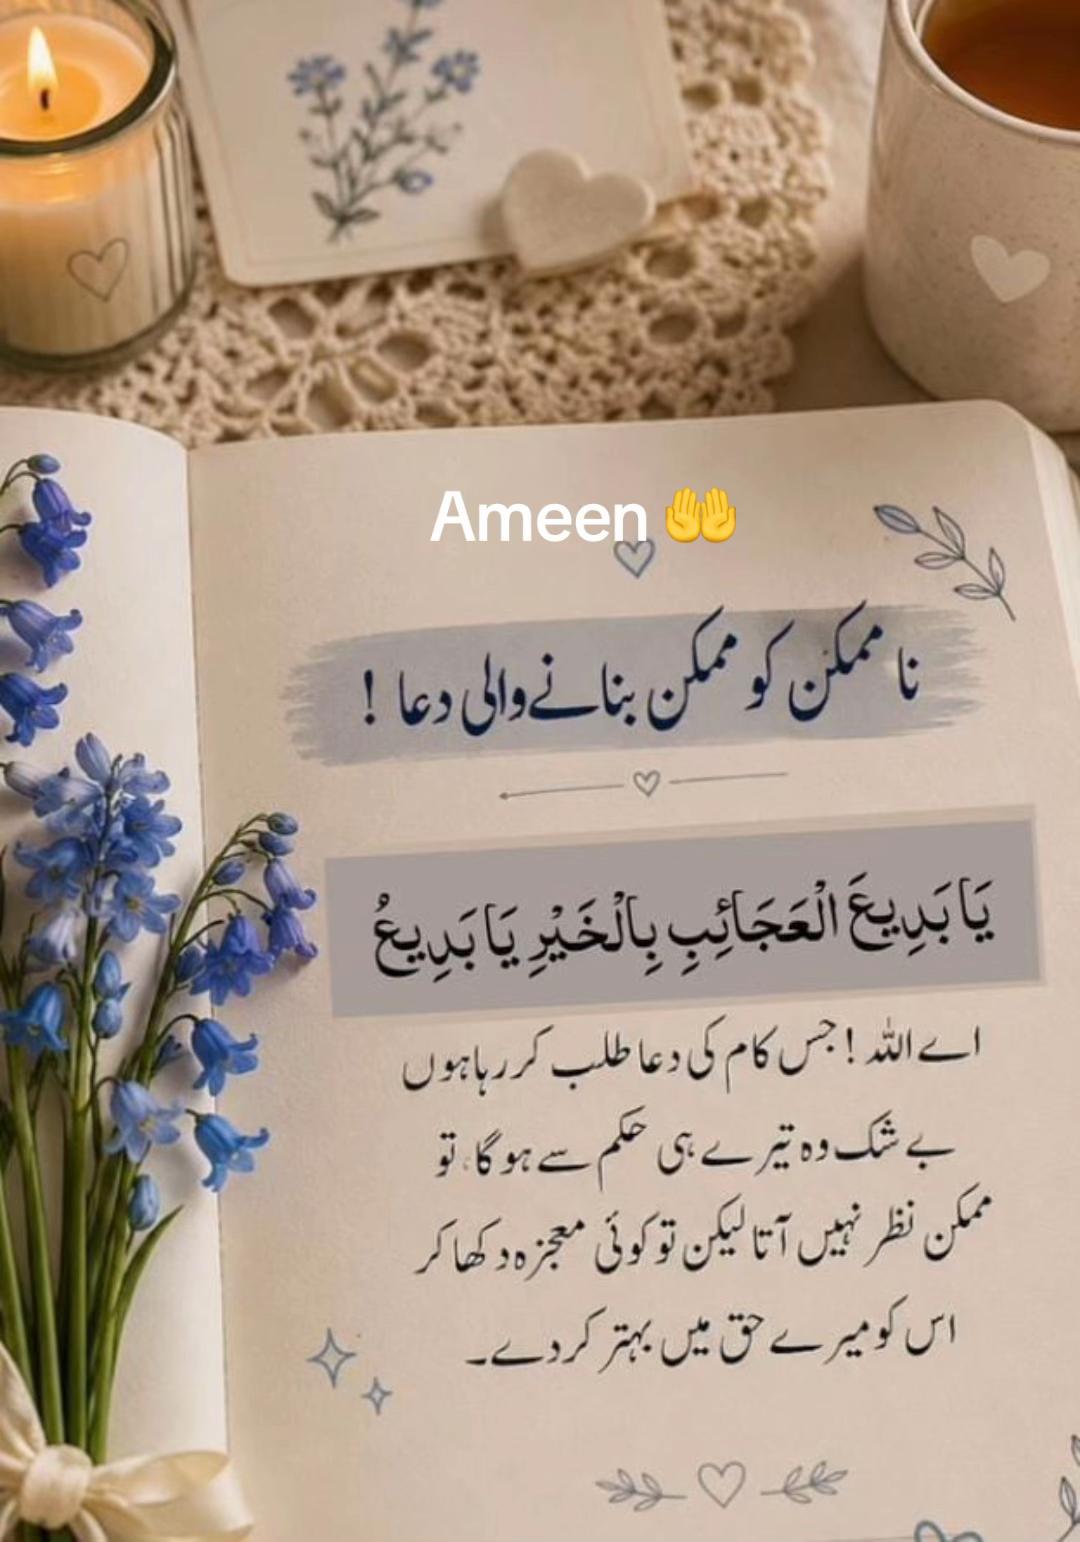 Ameen 🤲
نا ممکن کو ممکن بنانے والی دعا !
يَا بَدِيعَ الْعَجَائِبِ بِالْخَيْرِ يَا بَدِيعُ
اے اللہ ! جس کام کی دعا طلب کر رہا ہوں
بے شک وہ تیرے ہی حکم سے ہو گا، تو
ممکن نظر نہیں آتا لیکن تو کوئی معجزہ دکھا کر
اس کو میرے حق میں بہتر کر دے۔